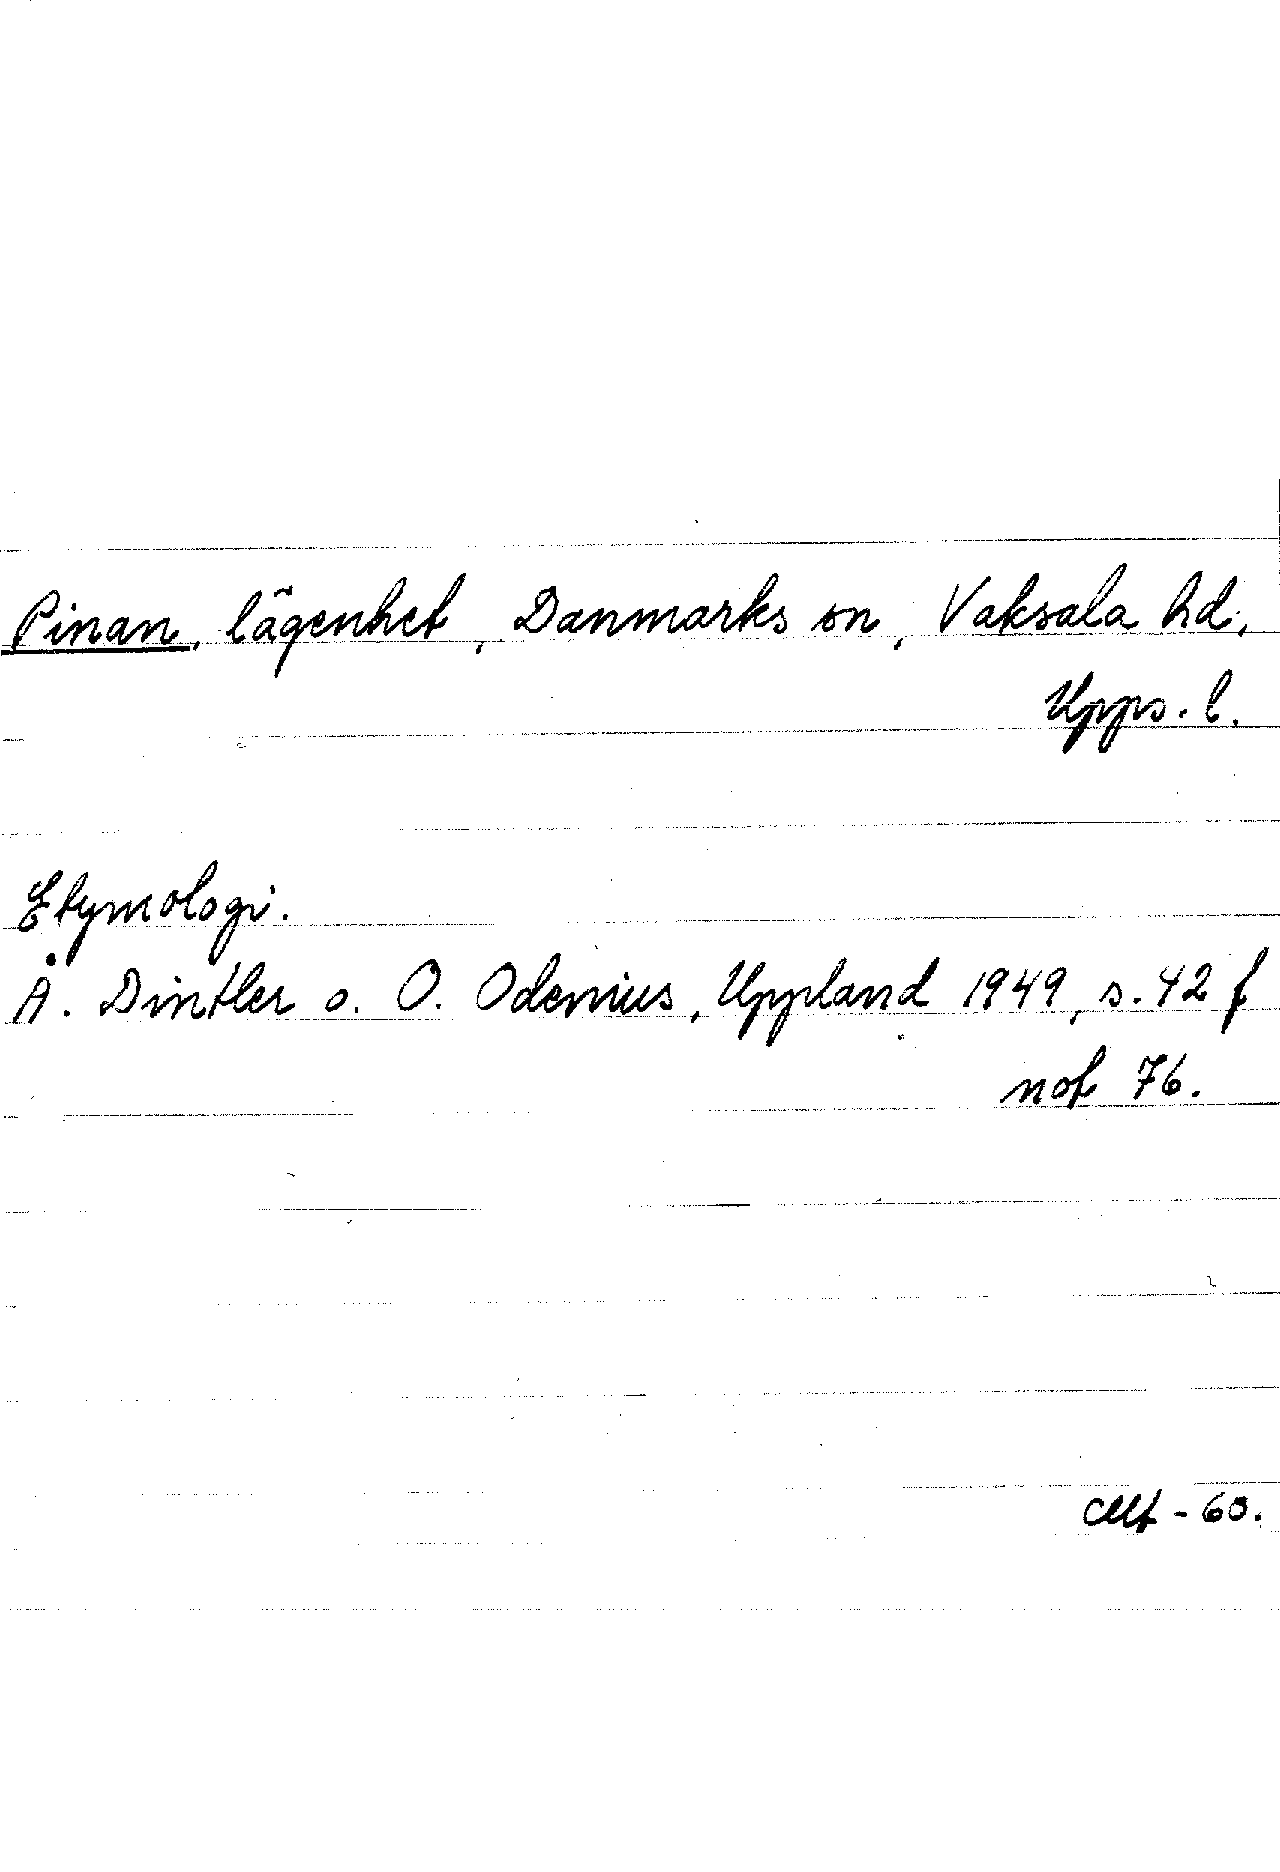 Pinan, lägenhet, Danmarks sn, Vaksala hd,
Upps. l.
Etymologi.
Å. Dintler o. O. Odenius, Uppland 1949, s. 42 f
not 76.
-60.